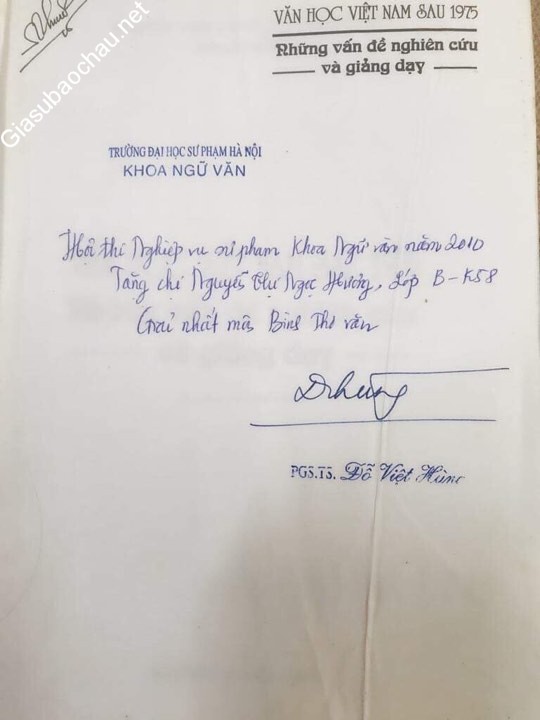 Giasubaochau.net
VĂN HỌC VIỆT NAM SAU 1975
Những vấn đề nghiên cứu
và giảng dạy
TRƯỜNG ĐẠI HỌC SƯ PHẠM HÀ NỘI
KHOA NGỮ VĂN
Hội thi Nghiệp vụ sư phạm Khoa Ngữ văn năm 2010
Tặng chị Nguyễn Thị Ngọc Hương, Lớp B-K58
Giải nhất môn Bình Thơ văn
PGS.TS. Đỗ Việt Hùng